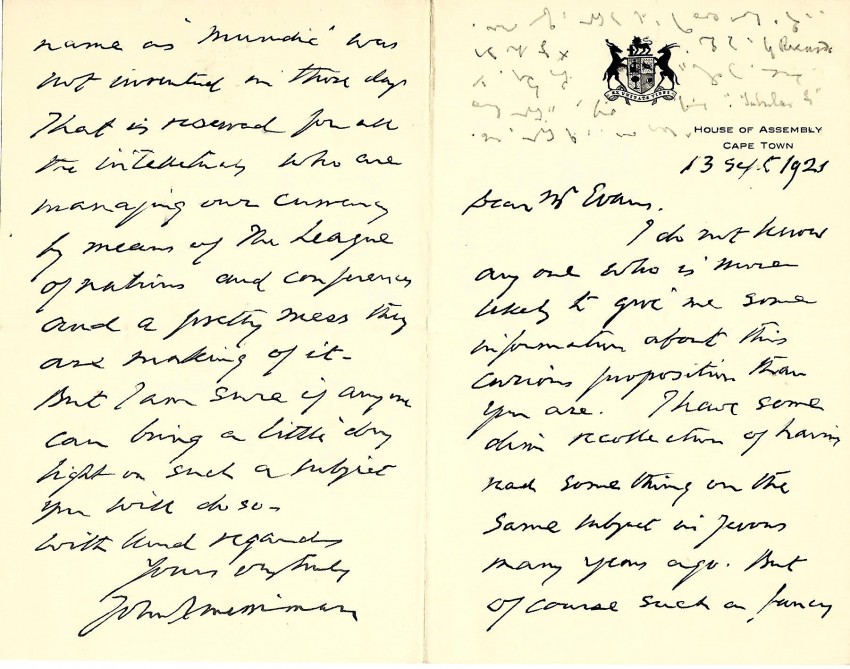 HOUSE OF ASSEMBLY
CAPE TOWN
13 Sept 1921
Dear Mr Evans.
I do not know
any one who is more
likely to give me some
information about this
curious proposition than
you are. I have some
dim recollection of having
read something on the
same subject in Jevons
many years ago. But
of course such a fancy
name as "Mundic" was
not invented in those days
That is reserved for all
the intellectuals who are
managing our currency
by means of The League
of nations and conferences
and a pretty mess they
are making of it-
But I am sure if anyone
can bring a little dry
light on such a subject
you will do so-
With kind regards
Yours very truly
John X Merriman